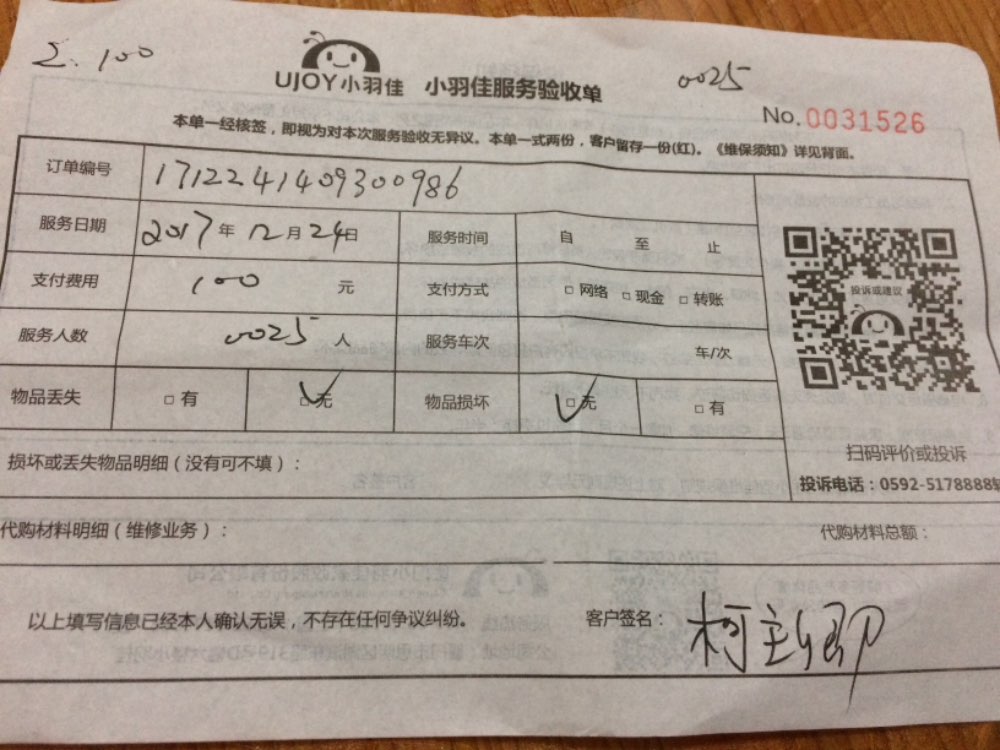 Σ. 100
0025
UJOY小羽佳 小羽佳服务验收单
No. 0031526
本单一经核签，即视为对本次服务验收无异议。本单一式两份，客户留存一份(红)。《维保须知》详见背面。
订单编号 1712241409300986
服务日期 2017年12月24日 服务时间 自 至 止
支付费用 100 元 支付方式 □网络 □现金 □转账
投诉或建议
服务人数 0025 人 服务车次 车/次
物品丢失 □有 □无 物品损坏 □无 □有
扫码评价或投诉
损坏或丢失物品明细（没有可不填）：
投诉电话：0592-5178888转
代购材料明细（维修业务）： 代购材料总额：
以上填写信息已经本人确认无误，不存在任何争议纠纷。 客户签名：柯